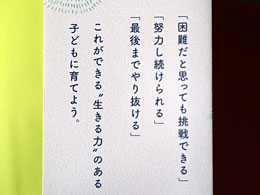 「困難だと思っても挑戦できる」
「努力し続けられる」
「最後までやり抜ける」
これができる〝生きる力〟のある
子どもに育てよう。